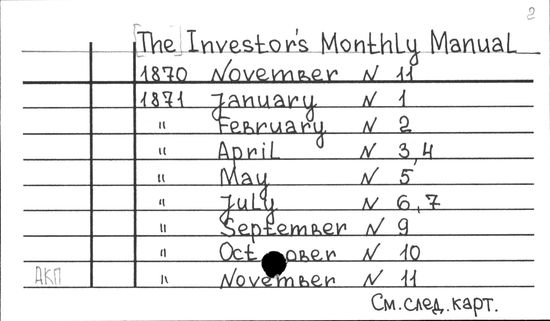 2
[The] Investor's Monthly Manual
1870 November N 11
1871 January N 1
" February N 2
" April N 3,4
" May N 5
" July N 6,7
" September N 9
" October N 10
АКП " November N 11
См.след.карт.